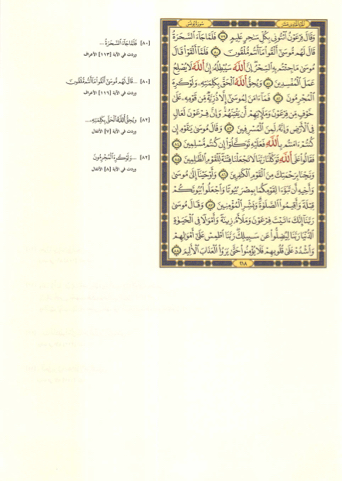 وَقَالَ فِرْعَوْنُ ٱئْتُونِى بِكُلِّ سَٰحِرٍ عَلِيمٍ ٧٩ فَلَمَّا جَآءَ ٱلسَّحَرَةُ
قَالَ لَهُم مُّوسَىٰٓ أَلْقُوا۟ مَآ أَنتُم مُّلْقُونَ ٨٠ فَلَمَّآ أَلْقَوْا۟ قَالَ
مُوسَىٰ مَا جِئْتُم بِهِ ٱلسِّحْرُ إِنَّ ٱللَّهَ سَيُبْطِلُهُۥٓ إِنَّ ٱللَّهَ لَا يُصْلِحُ
عَمَلَ ٱلْمُفْسِدِينَ ٨١ وَيُحِقُّ ٱللَّهُ ٱلْحَقَّ بِكَلِمَٰتِهِۦ وَلَوْ كَرِهَ
ٱلْمُجْرِمُونَ ٨٢ فَمَآ ءَامَنَ لِمُوسَىٰٓ إِلَّا ذُرِّيَّةٌ مِّن قَوْمِهِۦ عَلَىٰ
خَوْفٍ مِّن فِرْعَوْنَ وَمَلَإِي۟هِمْ أَن يَفْتِنَهُمْ وَإِنَّ فِرْعَوْنَ لَعَالٍ
فِى ٱلْأَرْضِ وَإِنَّهُۥ لَمِنَ ٱلْمُسْرِفِينَ ٨٣ وَقَالَ مُوسَىٰ يَٰقَوْمِ إِن
كُنتُمْ ءَامَنتُم بِٱللَّهِ فَعَلَيْهِ تَوَكَّلُوٓا۟ إِن كُنتُم مُّسْلِمِينَ ٨٤
فَقَالُوا۟ عَلَى ٱللَّهِ تَوَكَّلْنَا رَبَّنَا لَا تَجْعَلْنَا فِتْنَةً لِّلْقَوْمِ ٱلظَّٰلِمِينَ ٨٥
وَنَجِّنَا بِرَحْمَتِكَ مِنَ ٱلْقَوْمِ ٱلْكَٰفِرِينَ ٨٦ وَأَوْحَيْنَآ إِلَىٰ مُوسَىٰ
وَأَخِيهِ أَن تَبَوَّءَا لِقَوْمِكُمَا بِمِصْرَ بُيُوتًا وَٱجْعَلُوا۟ بُيُوتَكُمْ
قِبْلَةً وَأَقِيمُوا۟ ٱلصَّلَوٰةَ وَبَشِّرِ ٱلْمُؤْمِنِينَ ٨٧ وَقَالَ مُوسَىٰ
رَبَّنَآ إِنَّكَ ءَاتَيْتَ فِرْعَوْنَ وَمَلَأَهُۥ زِينَةً وَأَمْوَٰلًا فِى ٱلْحَيَوٰةِ
ٱلدُّنْيَا رَبَّنَا لِيُضِلُّوا۟ عَن سَبِيلِكَ رَبَّنَا ٱطْمِسْ عَلَىٰٓ أَمْوَٰلِهِمْ
وَٱشْدُدْ عَلَىٰ قُلُوبِهِمْ فَلَا يُؤْمِنُوا۟ حَتَّىٰ يَرَوُا۟ ٱلْعَذَابَ ٱلْأَلِيمَ ٨٨
٢١٨
[٨٠] فَلَمَّا جَآءَ ٱلسَّحَرَةُ ...
وردت في الآية [١١٣] الأعراف
[٨٠] ... قَالَ لَهُم مُّوسَىٰٓ أَلْقُوا۟ مَآ أَنتُم مُّلْقُونَ
وردت في الآية [١١٦] الأعراف
[٨٢] وَيُحِقُّ ٱللَّهُ ٱلْحَقَّ بِكَلِمَٰتِهِۦ ...
وردت في الآية [٧] الأنفال
[٨٢] ... وَلَوْ كَرِهَ ٱلْمُجْرِمُونَ
وردت في الآية [٨] الأنفال